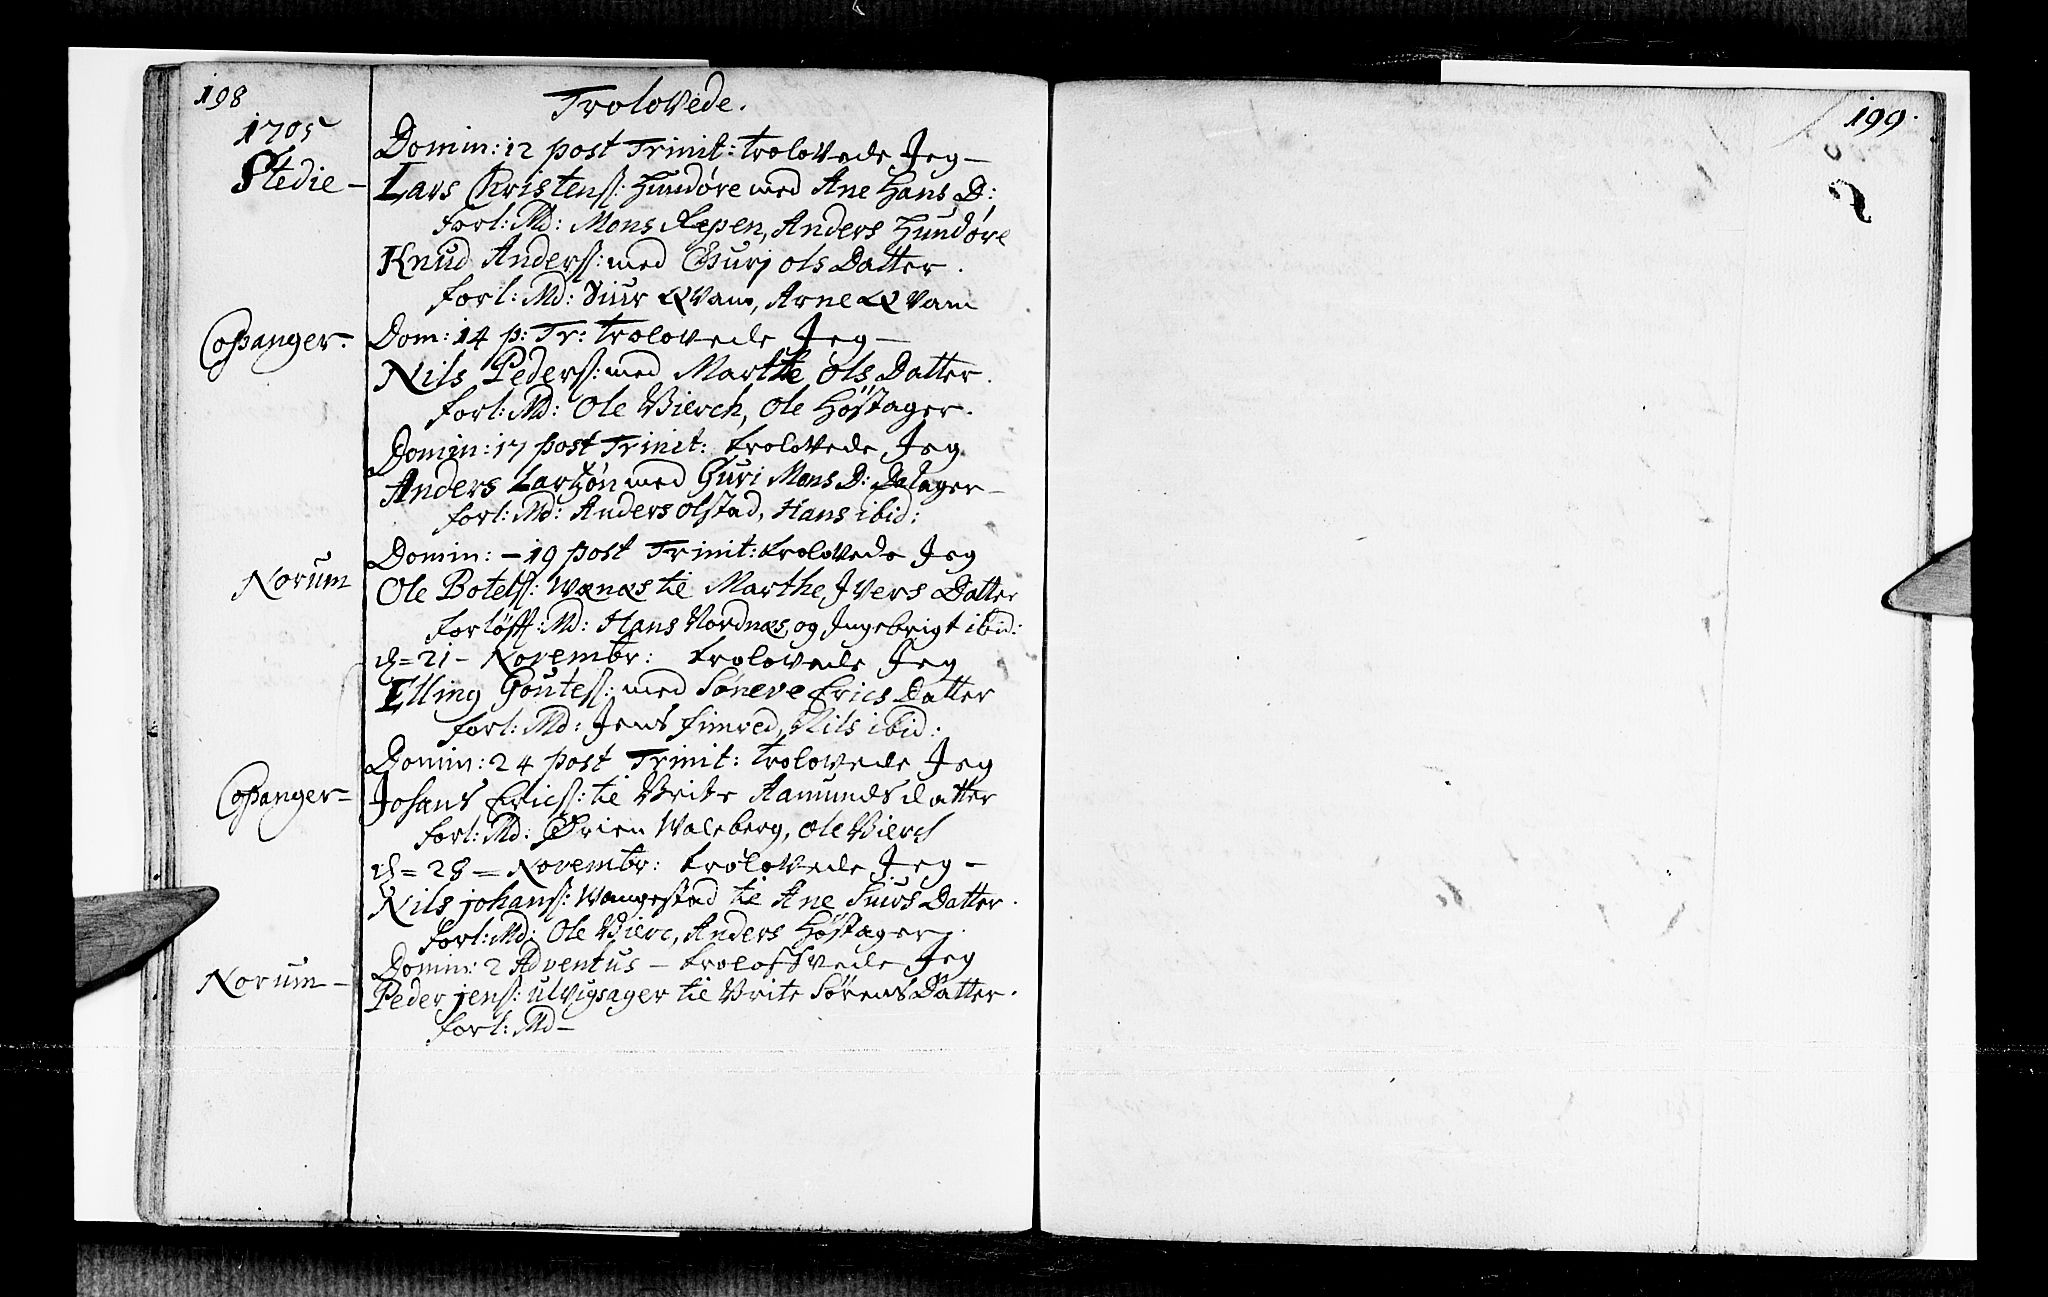 198
Trolovede.
1705
Domin: 12 post Trinit: trolovede Jeg —
Stedie —
Lars Christenß: Hundøre med Ane Hans D:
forl: Md: Mons Ræpen, Anders Hundøre
Knud Anderß: med Gurj Ols Datter.
forl: Md: Siur Qvam, Arne Qvam
Coßanger —
Dom: 14 p: Tr: trolovede Jeg —
Nils Pederß: med Marthe Ols Datter.
forl: Md: Ole Bierch, Ole Høstager.
Domin: 17 post Trinit: trolovede Jeg
Anders Larßøn med Guri Mons D: Dalager —
forl: Md: Anders Olstad, Hans ibid:
Domin: — 19 post Trinit: trolovede Jeg
Norum
Ole Botelß: til Marthe Ivers Datter
forløff: Md: Hans Nordnæs, og Ingebrigt ibid:
d = 21 — Novembr: trolovede Jeg
Elling Gouteß: med Søneve Erics Datter
forl: Md: Jens Fimred, Nils ibid:
Domin: 24 post Trinit: trolovede Jeg
Coßanger —
Johans Ericß: til Brite Aamunds datter
forl: Md: Ørien Waleberg, Ole Bierch
d = 28 — Novembr: trolovede Jeg —
Nils johanß: Wangestad til Ane Siurs Datter.
forl: Md: Ole Bierc, Anders Høstager.
Domin: 2 Adventus — troloffvede Jeg
Norum —
Peder jenß: ulvigsager til Brite Sørens Datter.
forl: Md —
199.